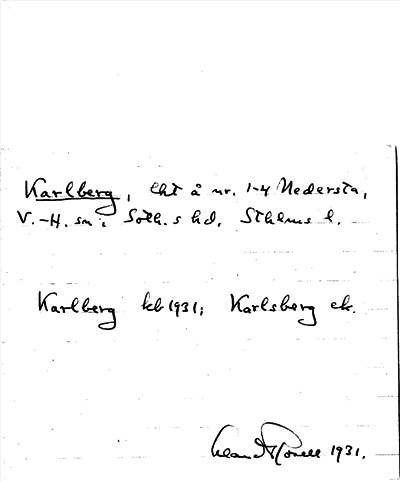 Karlberg, lht å nr. 1-4 Nedersta,
V.-H. sn, Soth.s hd, Sthlms l.
Karlberg kb 1931; Karlsberg ek.
1931.